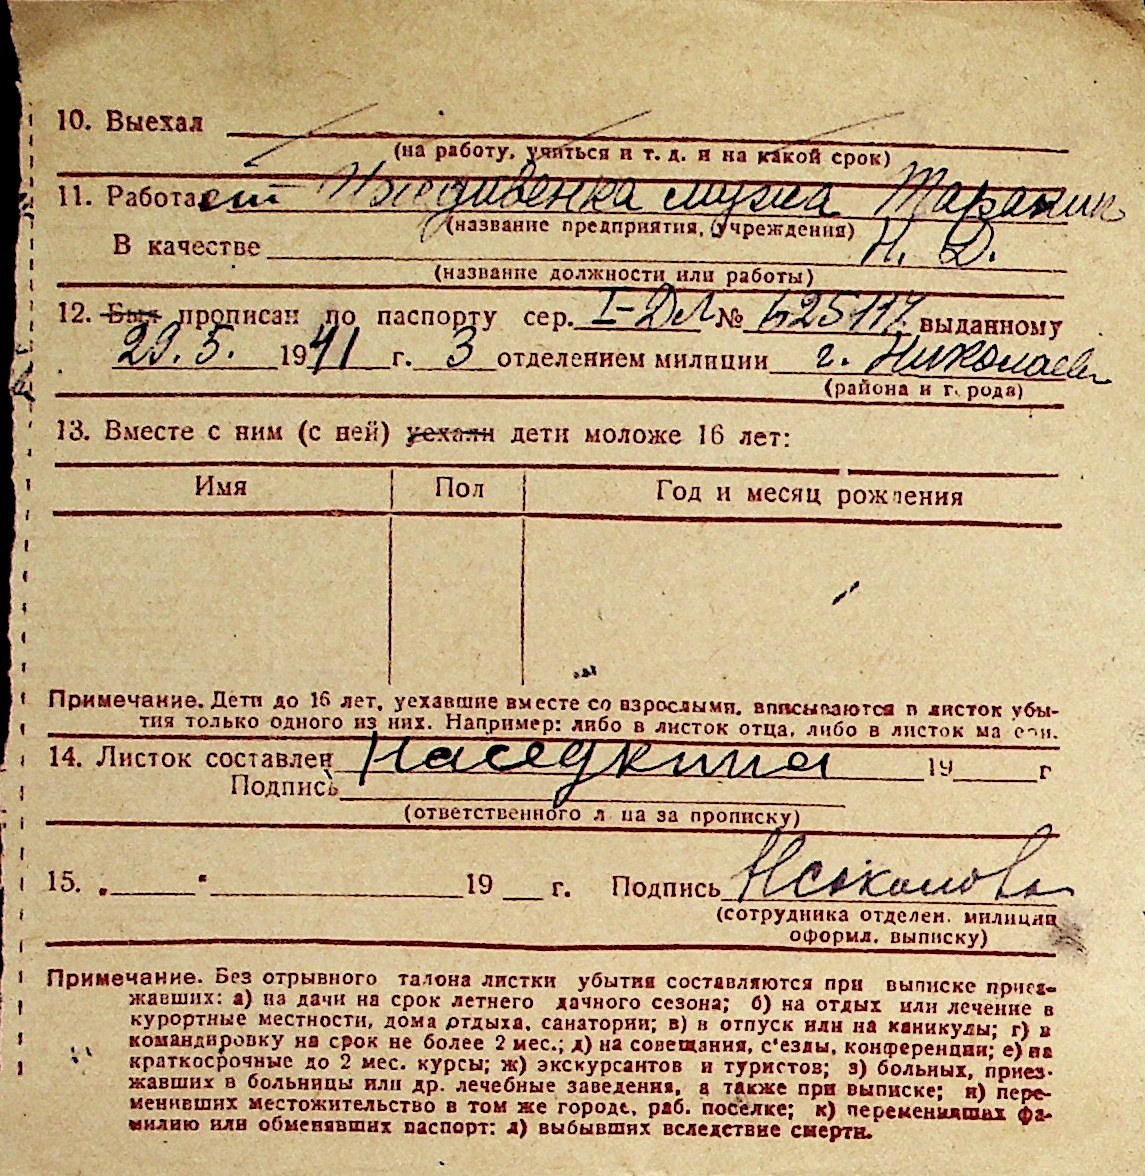 10. Выехал
(на работу, учиться и т. д. и на какой срок)
11. Работает Иждивенка мужа Таранин
(название предприятия, учреждения)
В качестве Н. Д.
(название должности или работы)
12. Был прописан по паспорту сер. I-ДЛ № 625117 выданному
29.5. 1941 г. 3 отделением милиции г. Николаев
(района и города)
13. Вместе с ним (с ней) уехали дети моложе 16 лет:
Имя Пол Год и месяц рождения
Примечание. Дети до 16 лет, уехавшие вместе со взрослыми, вписываются в листок убы-
тия только одного из них. Например: либо в листок отца, либо в листок матери.
14. Листок составлен Наседкина 19 г
Подпись
(ответственного лица за прописку)
15. „ " 19 г. Подпись Нсоколова
(сотрудника отделен. милиции
оформл. выписку)
Примечание. Без отрывного талона листки убытия составляются при выписке приез-
жавших: а) на дачи на срок летнего дачного сезона; б) на отдых или лечение в
курортные местности, дома отдыха, санатории; в) в отпуск или на каникулы; г) в
командировку на срок не более 2 мес.; д) на совещания, с'езды, конференции; е) на
краткосрочные до 2 мес. курсы; ж) экскурсантов и туристов; з) больных, приез-
жавших в больницы или др. лечебные заведения, а также при выписке; и) пере-
менивших местожительство в том же городе, раб. поселке; к) переменивших фа-
милию или обменявших паспорт; л) выбывших вследствие смерти.